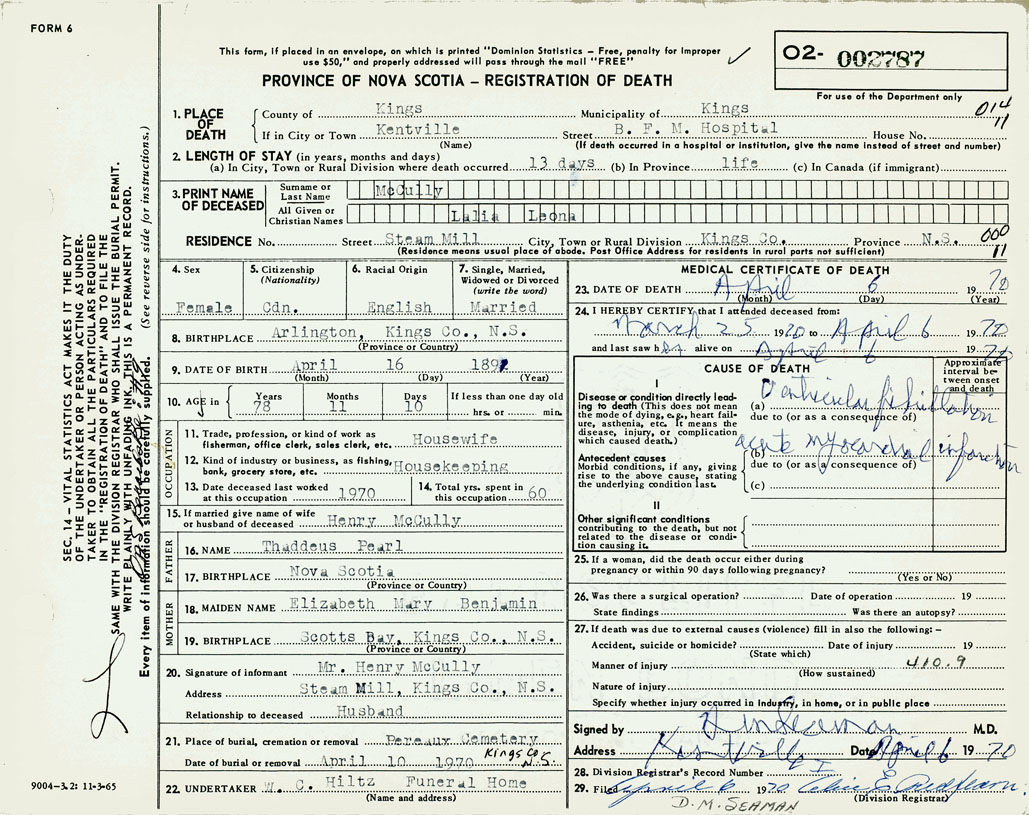 FORM 6
This form, if placed in an envelope, on which is printed "Dominion Statistics – Free, penalty for improper
use $50," and properly addressed will pass through the mail "FREE"
O2- 002787
For use of the Department only
PROVINCE OF NOVA SCOTIA – REGISTRATION OF DEATH
014
11
1. PLACE OF DEATH
County of Kings Municipality of Kings
If in City or Town Kentville Street B. F. M. Hospital House No.
(Name) (If death occurred in a hospital or institution, give the name instead of street and number)
2. LENGTH OF STAY (in years, months and days)
(a) In City, Town or Rural Division where death occurred 13 days (b) In Province life (c) In Canada (if immigrant)
3. PRINT NAME OF DECEASED
Surname or Last Name McCully
All Given or Christian Names Lalia Leona
RESIDENCE No. Street Steam Mill City, Town or Rural Division Kings Co. Province N.S.
000
11
(Residence means usual place of abode. Post Office Address for residents in rural parts not sufficient)
4. Sex 5. Citizenship (Nationality) 6. Racial Origin 7. Single, Married, Widowed or Divorced (write the word)
Female Cdn. English Married
8. BIRTHPLACE Arlington, Kings Co., N.S.
(Province or Country)
9. DATE OF BIRTH April 16 1891
(Month) (Day) (Year)
10. AGE in Years 78 Months 11 Days 10 If less than one day old hrs. or min.
OCCUPATION
11. Trade, profession, or kind of work as fisherman, office clerk, sales clerk, etc. Housewife
12. Kind of industry or business, as fishing, bank, grocery store, etc. Housekeeping
13. Date deceased last worked at this occupation 1970
14. Total yrs. spent in this occupation 60
15. If married give name of wife or husband of deceased Henry McCully
FATHER
16. NAME Thaddeus Pearl
17. BIRTHPLACE Nova Scotia
(Province or Country)
MOTHER
18. MAIDEN NAME Elizabeth Mary Benjamin
19. BIRTHPLACE Scotts Bay, Kings Co., N.S.
(Province or Country)
20. Signature of informant Mr. Henry McCully
Address Steam Mill, Kings Co., N.S.
Relationship to deceased Husband
21. Place of burial, cremation or removal Pereaux Cemetery
Kings Co. N.S.
Date of burial or removal April 10 1970
22. UNDERTAKER W. C. Hiltz Funeral Home
(Name and address)
MEDICAL CERTIFICATE OF DEATH
23. DATE OF DEATH April 6 1970
(Month) (Day) (Year)
24. I HEREBY CERTIFY that I attended deceased from:
March 25 1970 to April 6 1970
and last saw her alive on April 6 1970
CAUSE OF DEATH
Approximate interval between onset and death
I
Disease or condition directly leading to death (This does not mean the mode of dying, e.g., heart failure, asthenia, etc. It means the disease, injury, or complication which caused death.)
(a) Ventricular fibrillation
due to (or as a consequence of)
Antecedent causes
Morbid conditions, if any, giving rise to the above cause, stating the underlying condition last.
(b) acute myocardial infarction
due to (or as a consequence of)
(c)
II
Other significant conditions
contributing to the death, but not related to the disease or condition causing it.
25. If a woman, did the death occur either during pregnancy or within 90 days following pregnancy?
(Yes or No)
26. Was there a surgical operation? Date of operation 19
State findings Was there an autopsy?
27. If death was due to external causes (violence) fill in also the following: –
Accident, suicide or homicide? Date of injury 19
(State which)
Manner of injury 410.9
(How sustained)
Nature of injury
Specify whether injury occurred in Industry, in home, or in public place
Signed by M.D.
Address Kentville Date April 6 1970
28. Division Registrar's Record Number
29. Filed April 6 1970
(Division Registrar)
D.M. SEAMAN
SEC. 14 – VITAL STATISTICS ACT MAKES IT THE DUTY
OF THE UNDERTAKER OR PERSON ACTING AS UNDER-
TAKER TO OBTAIN ALL THE PARTICULARS REQUIRED
IN THE "REGISTRATION OF DEATH" AND TO FILE THE
SAME WITH THE DIVISION REGISTRAR WHO SHALL ISSUE THE BURIAL PERMIT.
WRITE PLAINLY WITH UNFADING INK. THIS IS A PERMANENT RECORD.
Every item of information should be carefully supplied. (See reverse side for instructions.)
9004-3.2: 11-3-65